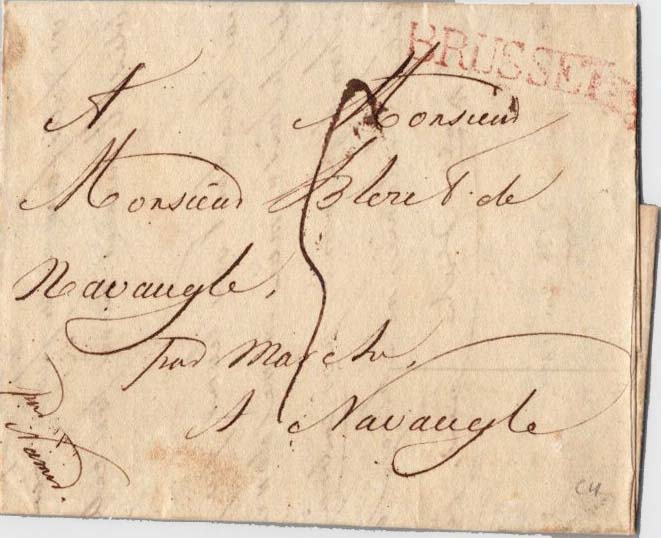 BRUSSEL
A Monsieur
Monsieur de
Navaugle,
par Marche,
A Navaugle
par
Namur.